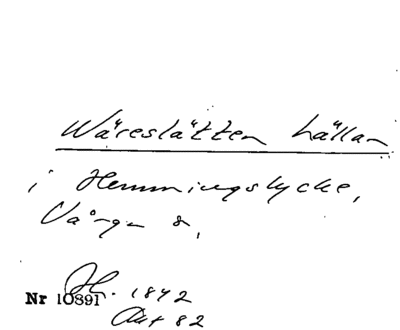 Wäreslätten hällan
i Hemmingslycke,
Vånga s,
Nr 10891. 1842
Akt 82